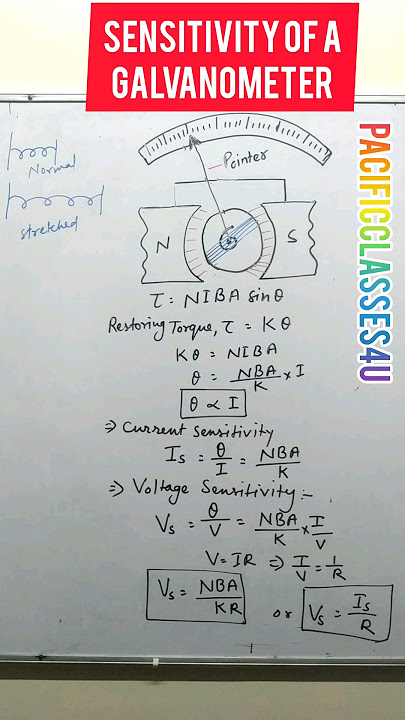 SENSITIVITY OF A
GALVANOMETER
PACIFICCLASSES4U
Normal
stretched
Pointer
N
S
τ = NIBA sinθ
Restoring Torque, τ = Kθ
Kθ = NIBA
θ = NBA/K × I
θ ∝ I
⇒ Current Sensitivity
I_s = θ/I = NBA/K
⇒ Voltage Sensitivity :-
V_s = θ/V = NBA/K × I/V
V = IR ⇒ I/V = 1/R
V_s = NBA/KR or V_s = I_s/R